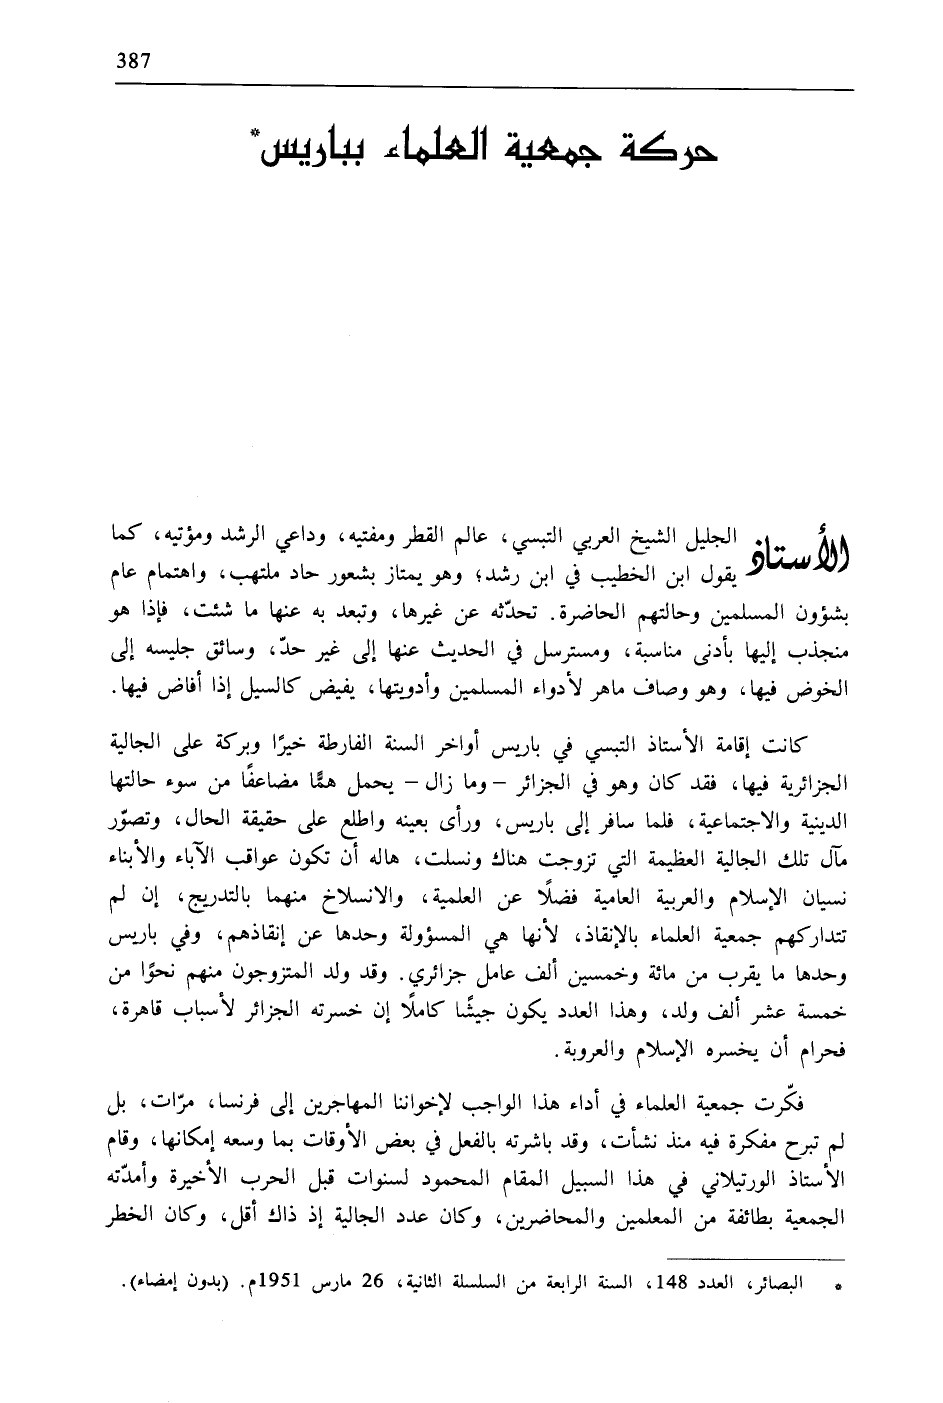 387
حركة جمعية العلماء بباريس*
الأستاذ الجليل الشيخ العربي التبسي، عالم القطر ومفتيه، وداعي الرشد ومؤتيه، كما
يقول ابن الخطيب في ابن رشد؛ وهو يمتاز بشعور حاد ملتهب، واهتمام عام
بشؤون المسلمين وحالتهم الحاضرة. تحدّثه عن غيرها، وتبعد به عنها ما شئت، فإذا هو
منجذب إليها بأدنى مناسبة، ومسترسل في الحديث عنها إلى غير حدّ، وسائق جليسه إلى
الخوض فيها، وهو وصاف ماهر لأدواء المسلمين وأدويتها، يفيض كالسيل إذا أفاض فيها.
كانت إقامة الأستاذ التبسي في باريس أواخر السنة الفارطة خيرًا وبركة على الجالية
الجزائرية فيها، فقد كان وهو في الجزائر – وما زال – يحمل همًّا مضاعفًا من سوء حالتها
الدينية والاجتماعية، فلما سافر إلى باريس، ورأى بعينه واطلع على حقيقة الحال، وتصوّر
مآل تلك الجالية العظيمة التي تزوجت هناك ونسلت، هاله أن تكون عواقب الآباء والأبناء
نسيان الإسلام والعربية العامية فضلًا عن العلمية، والانسلاخ منهما بالتدريج، إن لم
تتداركهم جمعية العلماء بالإنقاذ، لأنها هي المسؤولة وحدها عن إنقاذهم، وفي باريس
وحدها ما يقرب من مائة وخمسين ألف عامل جزائري. وقد ولد المتزوجون منهم نحوًا من
خمسة عشر ألف ولد، وهذا العدد يكون جيشًا كاملًا إن خسرته الجزائر لأسباب قاهرة،
فحرام أن يخسره الإسلام والعروبة.
فكّرت جمعية العلماء في أداء هذا الواجب لإخواننا المهاجرين إلى فرنسا، مرّات، بل
لم تبرح مفكرة فيه منذ نشأت، وقد باشرته بالفعل في بعض الأوقات بما وسعه إمكانها، وقام
الأستاذ الورتيلاني في هذا السبيل المقام المحمود لسنوات قبل الحرب الأخيرة وأمدّته
الجمعية بطائفة من المعلمين والمحاضرين، وكان عدد الجالية إذ ذاك أقل، وكان الخطر
* البصائر، العدد 148، السنة الرابعة من السلسلة الثانية، 26 مارس 1951م. (بدون إمضاء).